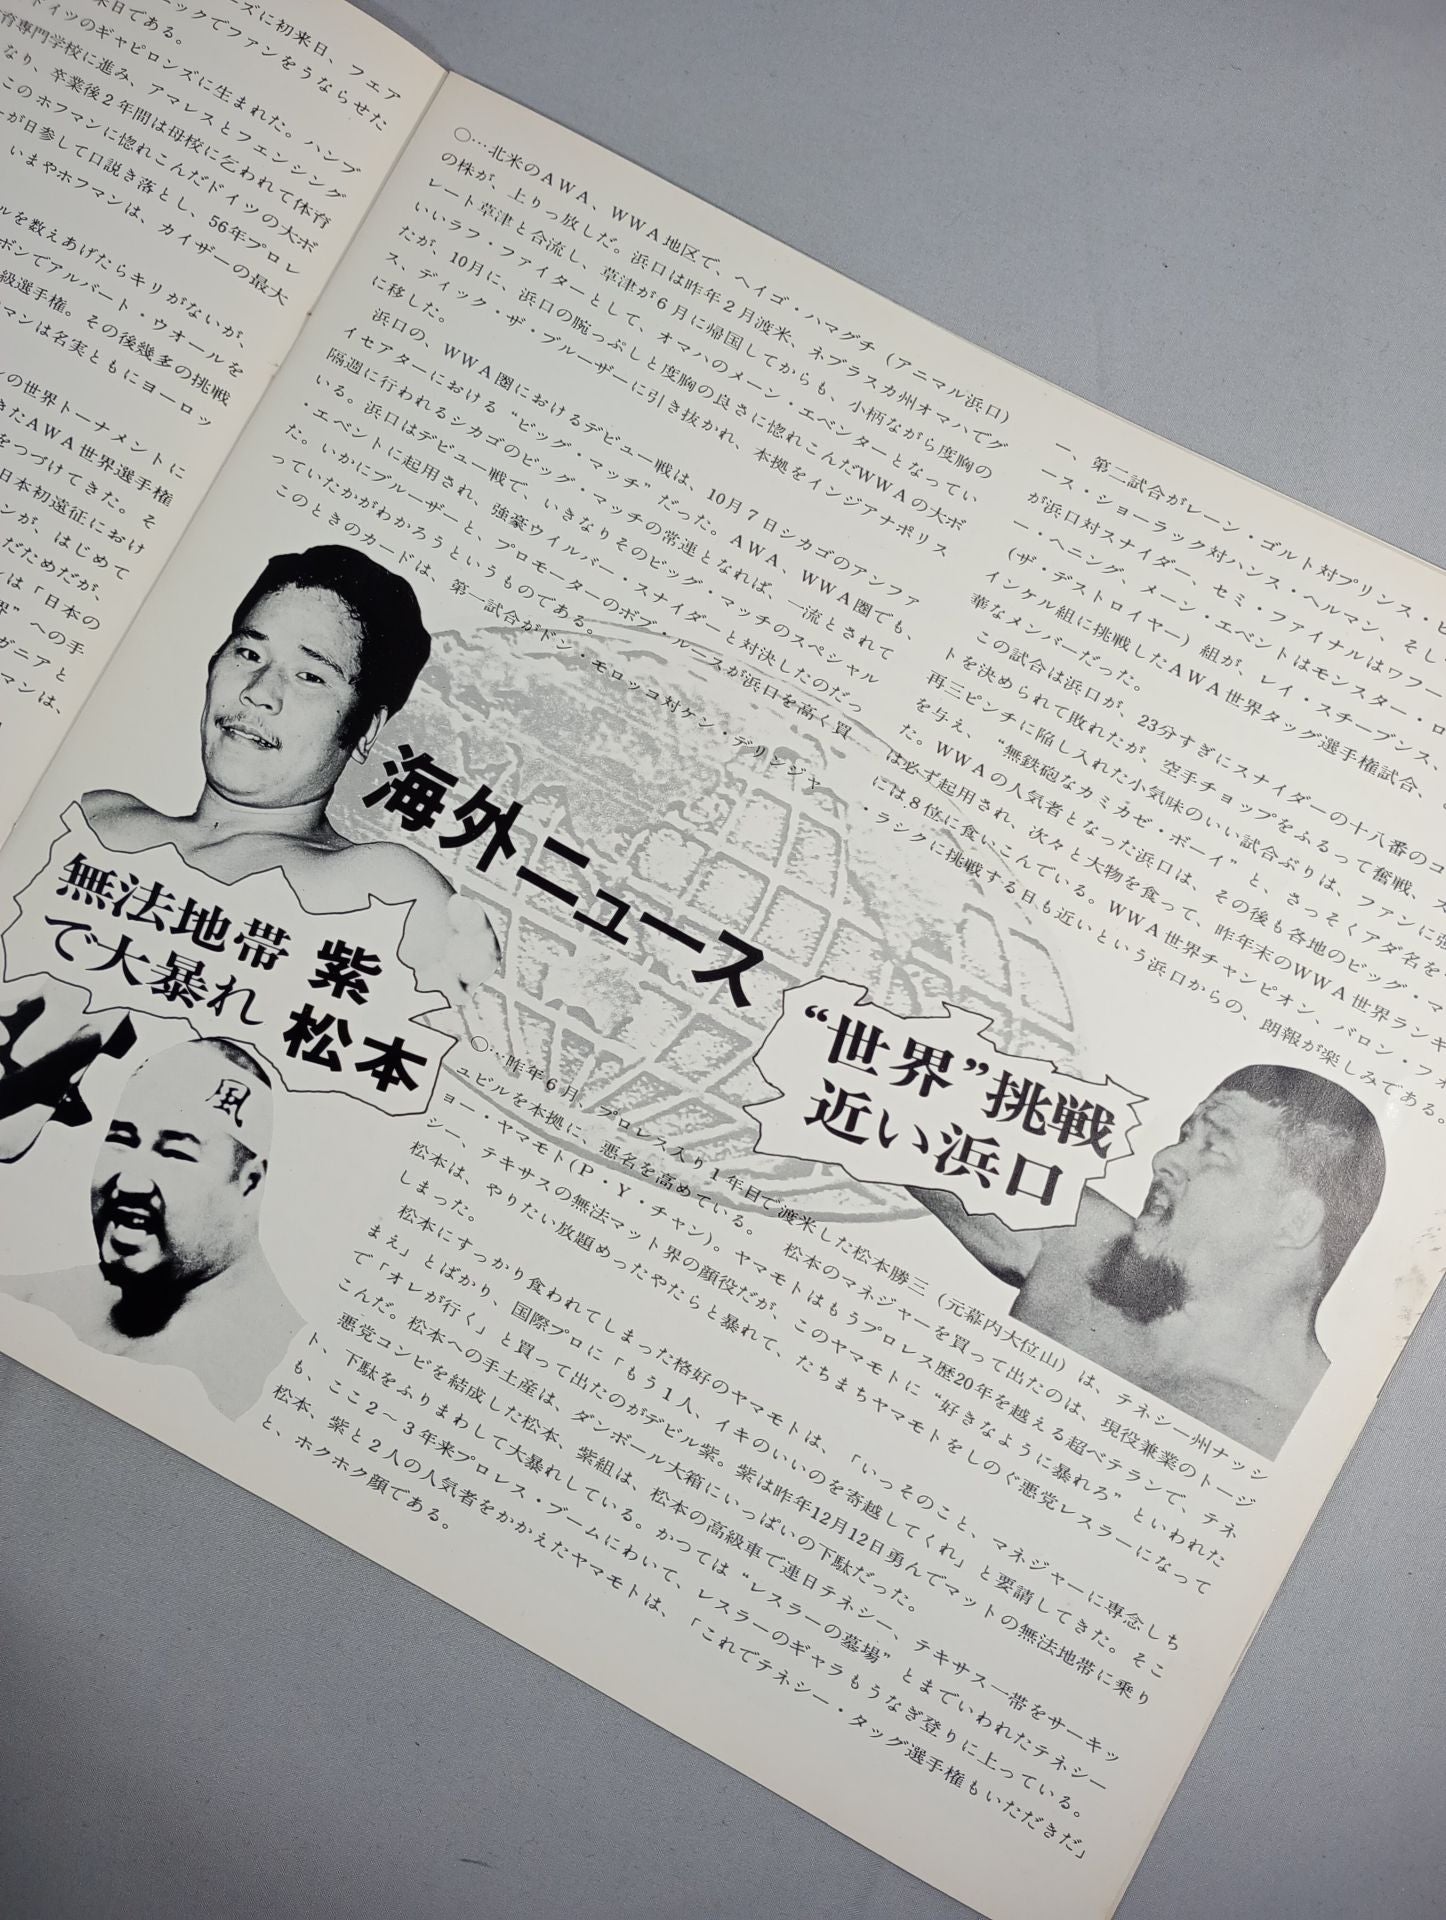 ーズに初来日、フェア
ニックでファンをうならせた
来日である。
ドイツのギャピロンズに生まれた。ハンブ
育専門学校に進み、アマレスとフェンシング
なり、卒業後2年間は母校に乞われて体育
このホフマンに惚れこんだドイツの大ボ
ーが日参して口説き落とし、56年プロレ
いまやホフマンは、カイザーの最大
ルを数えあげたらキリがないが、
ボンでアルバート・ウオールを
級選手権。その後幾多の挑戦
マンは名実ともにヨーロッ
ンの世界トーナメントに
きたAWA世界選手権
をつづけてきた。そ
日本初遠征におけ
ンが、はじめて
だためだが、
ンは「日本の
界”への手
ガニアと
マンは、
○…北米のAWA、WWA地区で、ヘイゴ・ハマグチ（アニマル浜口）
の株が、上りっ放しだ。浜口は昨年2月渡米、ネブラスカ州オマハでグ
レート草津と合流し、草津が6月に帰国してからも、小柄ながら度胸の
いいラフ・ファイターとして、オマハのメーン・エベンターとなってい
たが、10月に、浜口の腕っぷしと度胸の良さに惚れこんだWWAの大ボ
ス、ディック・ザ・ブルーザーに引き抜かれ、本拠をインジアナポリス
に移した。
浜口の、WWA圏におけるデビュー戦は、10月7日シカゴのアンファ
イセアターにおける“ビッグ・マッチ”だった。AWA、WWA圏でも、
隔週に行われるシカゴのビッグ・マッチの常連となれば、一流とされて
いる。浜口はデビュー戦で、いきなりそのビッグ・マッチのスペシャル
・エベントに起用され、強豪ウイルバー・スナイダーと対決したのだっ
た。いかにブルーザーと、プロモーターのボブ・ルースが浜口を高く買
っていたかがわかろうというものである。
このときのカードは、第一試合がドン・モロッコ対ケン・デリンジャ
一、第二試合がレーン・ゴルト対プリンス・ピ
ース・ショーラック対ハンス・ヘルマン、そし
が浜口対スナイダー、セミ・ファイナルはワフー
ー・ヘニング、メーン・エベントはモンスター・ロ
（ザ・デストロイヤー）組が、レイ・スチーブンス、
インケル組に挑戦したAWA世界タッグ選手権試合、
華なメンバーだった。
この試合は浜口が、23分すぎにスナイダーの十八番のコ
トを決められて敗れたが、空手チョップをふるって奮戦、ス
再三ピンチに陥し入れた小気味のいい試合ぶりは、ファンに強
を与え、“無鉄砲なカミカゼ・ボーイ”と、さっそくアダ名を
た。WWAの人気者となった浜口は、その後も各地のビッグ・マ
は必ず起用され、次々と大物を食って、昨年末のWWA世界ランキ
には8位に食いこんでいる。WWA世界チャンピオン、バロン・フォ
・ラシクに挑戦する日も近いという浜口からの、朗報が楽しみである。
海外ニュース
無法地帯
で大暴れ
紫
松本
“世界”挑戦
近い浜口
風
○…昨年6月、プロレス入り1年目で渡米した松本勝三（元幕内大位山）は、テネシー州ナッシ
ュビルを本拠に、悪名を高めている。　松本のマネジャーを買って出たのは、現役兼業のトージ
ョー・ヤマモト（P・Y・チャン）。ヤマモトはもうプロレス歴20年を越える超ベテランで、テネ
シー、テキサスの無法マット界の顔役だが、このヤマモトに“好きなように暴れろ”といわれた
松本は、やりたい放題めったやたらと暴れて、たちまちヤマモトをしのぐ悪党レスラーになって
しまった。
松本にすっかり食われてしまった格好のヤマモトは、「いっそのこと、マネジャーに専念しち
まえ」とばかり、国際プロに「もう1人、イキのいいのを寄越してくれ」と要請してきた。そこ
で「オレが行く」と買って出たのがデビル紫。紫は昨年12月12日勇んでマットの無法地帯に乗り
こんだ。松本への手土産は、ダンボール大箱にいっぱいの下駄だった。
悪党コンビを結成した松本、紫組は、松本の高級車で連日テネシー、テキサス一帯をサーキッ
ト、下駄をふりまわして大暴れしている。かつては“レスラーの墓場”とまでいわれたテネシー
も、ここ2～3年来プロレス・ブームにわいて、レスラーのギャラもうなぎ登りに上っている。
松本、紫と2人の人気者をかかえたヤマモトは、「これでテネシー・タッグ選手権もいただきだ」
と、ホクホク顔である。